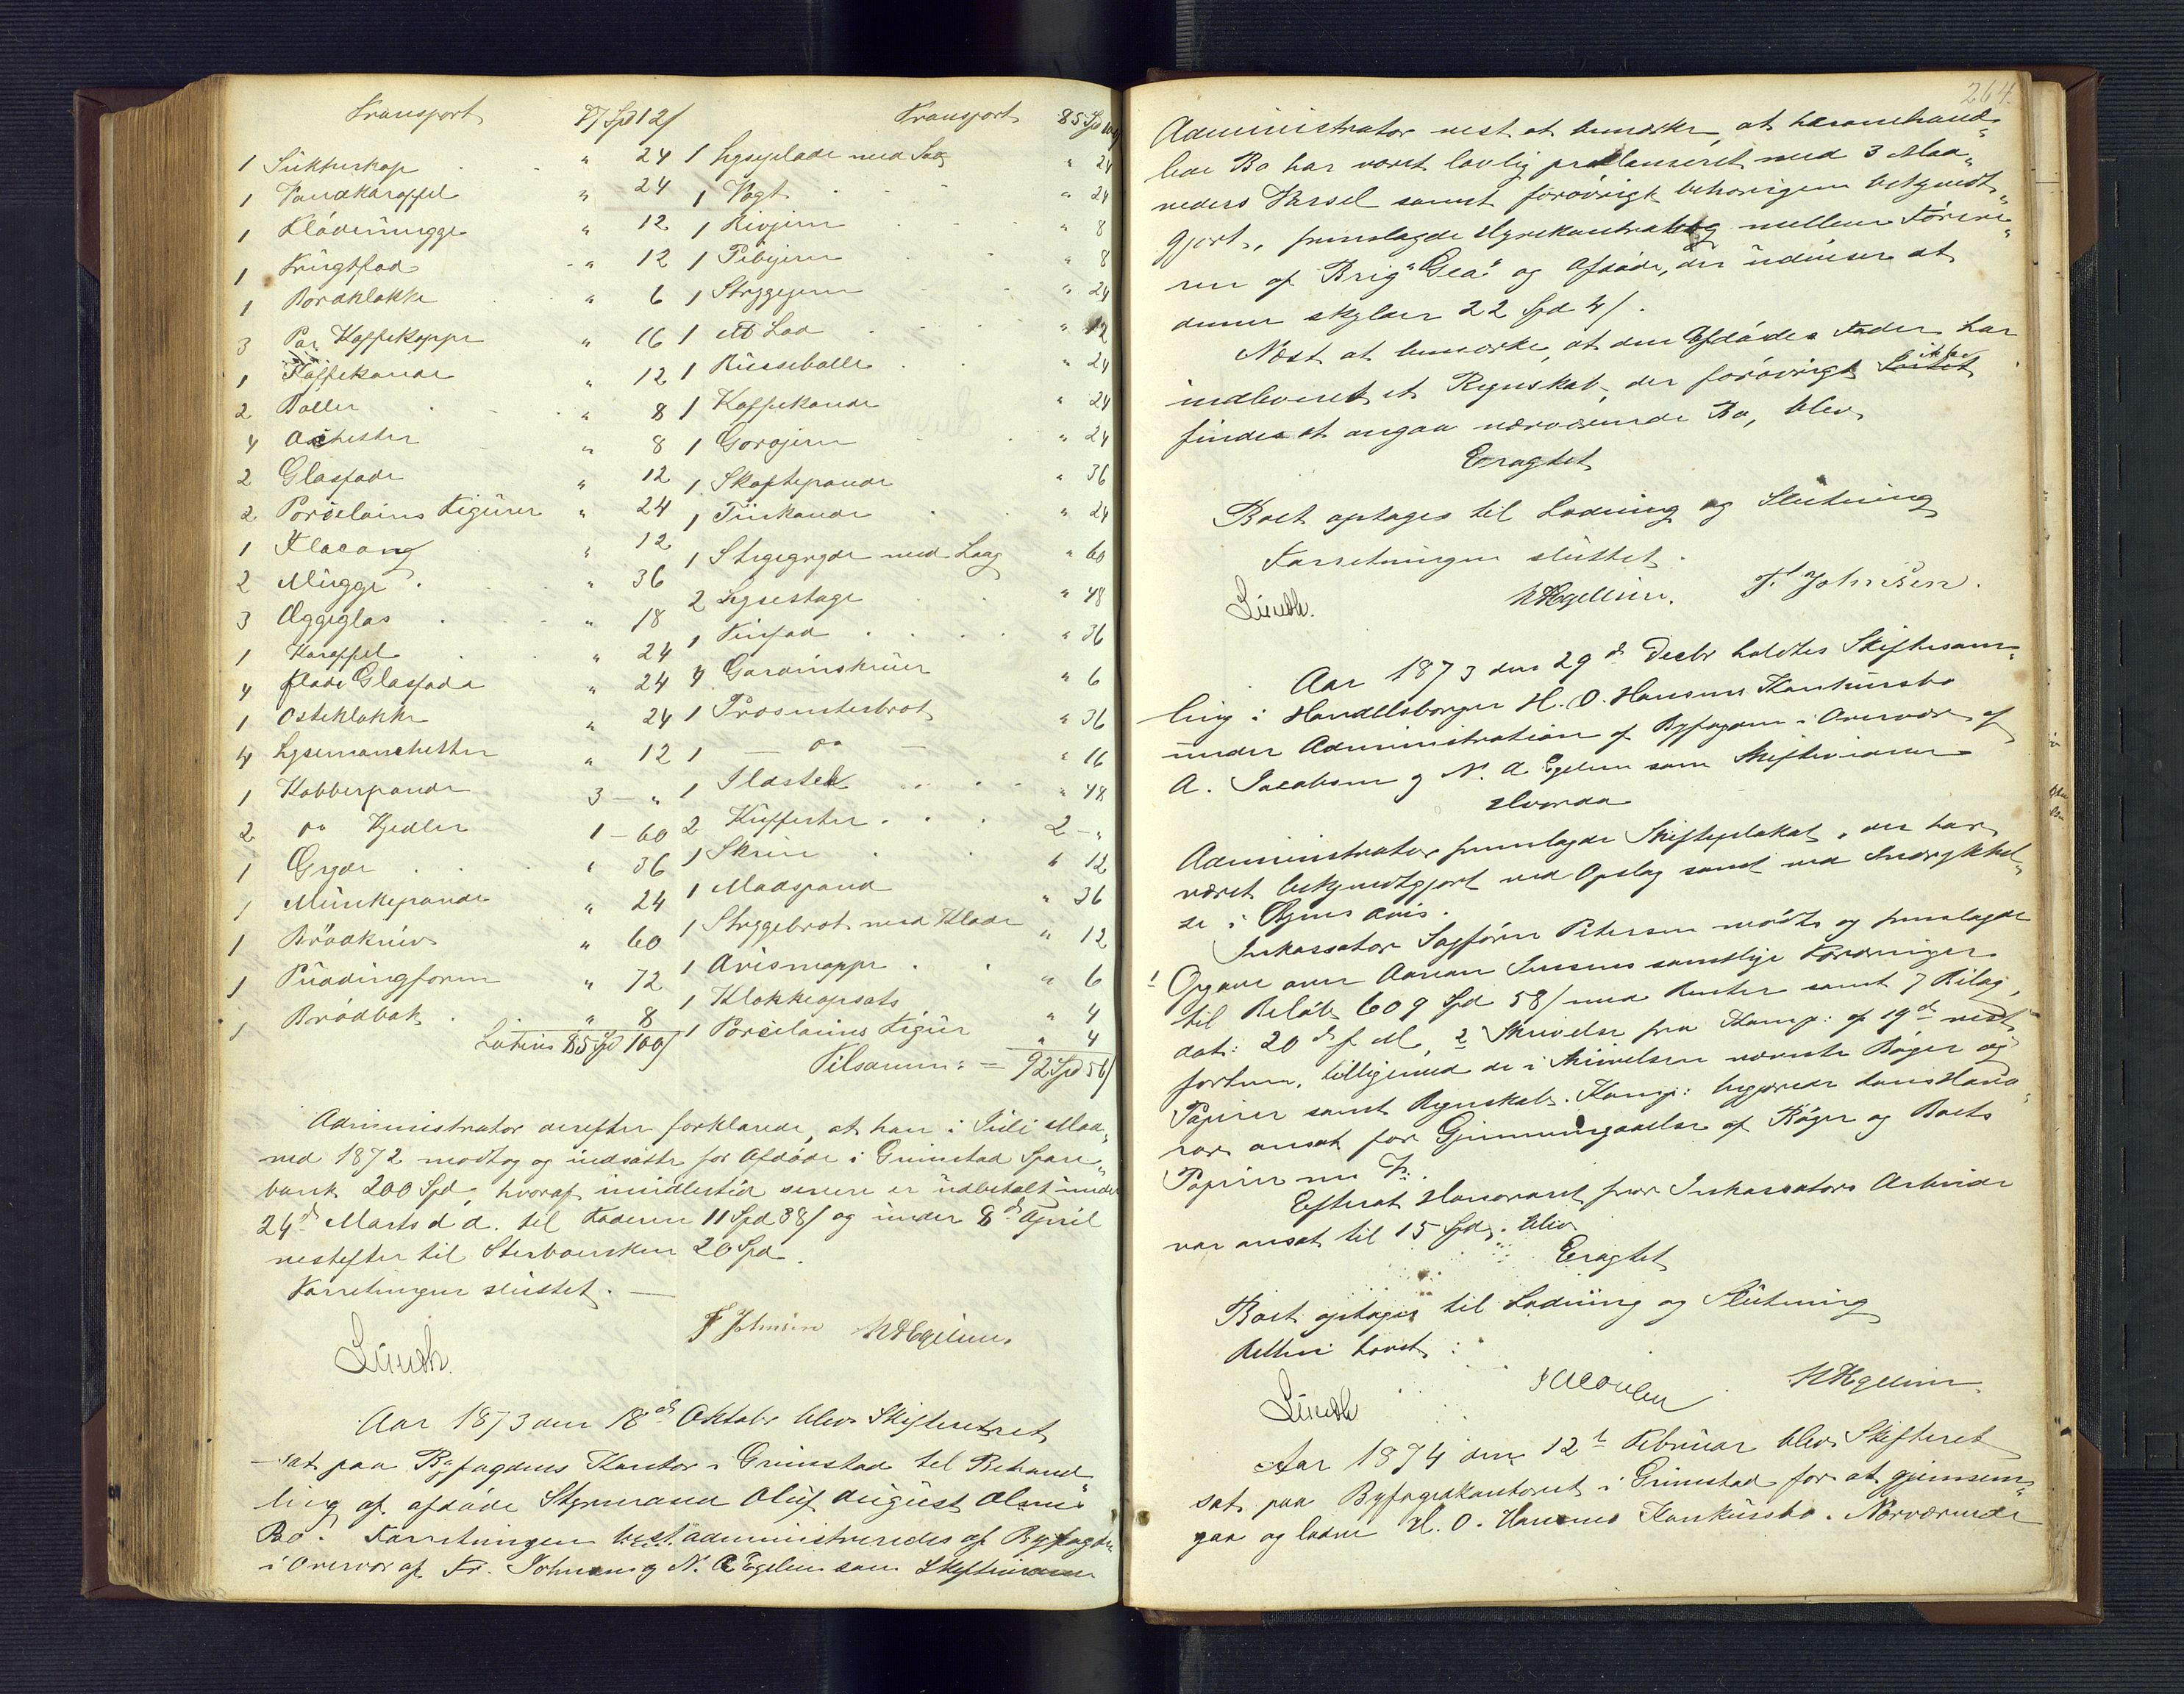 Transport 77 Spd 12/
1 Sukkerskop " 24
1 Vandkaraffel " 24
1 Flödemugge " 12
1 Frugtfad " 12
1 Bordklokke " 6
3 Par Kaffekopper " 16
1 Kaffekande " 12
2 Boller " 8
4 Asietter " 8
2 Glasfade " 12
2 Porcelains Figurer " 24
1 Flacong " 12
2 Mugge " 36
3 Æggeglas " 18
1 Karaffel " 24
4 flade Glasfade " 24
1 Osteklokke " 24
4 Lysemanchetter " 12
1 Kobberpande 3 - "
2 do Kjedler 1 - 60
1 Gryde " 36
1 Munkepande " 24
1 Brödkniv " 60
1 Puddingform " 72
1 Brödbak " 8
Lateris 85 Spd 100/
Transport 85 Spd 100/
1 Lyseplade med Sax " 24
1 Vegt " 24
1 Rivjern " 8
1 Pibejern " 8
1 Strygejern " 24
1 do Lod " 12
1 Punschebolle " 24
1 Kaffekande " 24
1 Gorojern " 24
1 Skaftepande " 36
1 Tinkande " 24
1 Stegegryde med Laag " 60
2 Lysestage " 48
1 Tinfad " 36
4 Gardinskruer " 6
1 Præsenterbret " 36
1 — do — " 16
1 Ildsted " 48
2 Kufferter 2 - "
1 Skrin " 12
1 Madspand " 36
1 Strygebret med Klæde " 12
1 Avismappe " 6
1 Klokkeopsats " 4
1 Porcelains Figur " 4
Tilsammen = 92 Spd 56/
Administrator derefter forklarede, at han i Juli Maa-
ned 1872 modtog og indsatte for Afdöde i Grimstad Spare-
bank 200 Spd, hvoraf imidlertid senere er udbetalt under
24d Marts d. A. til Faderen 11 Spd 38/ og under 8d April
nestefter til Stervboersken 20 Spd.
Forretningen sluttet. —
Lundh. F Johnsen NAEgelien.
Aar 1873 den 18d Oktobr blev Skifteret
sat paa Byfogdens Kontor i Grimstad til Behand-
ling af afdöde Styrmand Oluf August Olsens
Bo. Forretningen administreredes af Byfogden
i Overvær af Fr. Johnsen og N. A Egelien som Skiftevidner
264.
Administrator nest at bemærke, at hæromhand-
lede Bo har været lovlig proklameret med 3 Maa-
neders Varsel samt forövrigt behörigen bekjendt-
gjort, fremlagde Hyrekontrakt mellem Föreren
ren af Brig "Gea" og Afdöde, der udviser at
denne skylder 22 Spd 4/.
Næst at bemærke, at den Afdödes Fader har
indleveret et Regnskab, der forövrigt ikke
findes at angaa nærværende Bo, blev
Eragtet
Boet optages til Lodning og Slutning
Forretningen sluttet.
Lundh. NAEgelien. F. Johnsen.
Aar 1873 den 29d Decbr holdtes Skiftesam-
ling i Handelsborger H. O. Hansens Konkursbo
under Administration af Byfogden i Overvær af
A. Jacobsen og N. A Egelien som Skiftevidner
Hvorda
Administrator fremlagde Skifteplakat, der har
været bekjendtgjort ved Opslag samt ved Indrykkel-
se i Byens Avis.
Inkassator Sagförer Petersen mödte og fremlagde
1 Opgave over Aanon Jensens samtlige Fordringer
til Belöb 609 Spd 58/ med Renter samt 7 Bilag,
dat: 20d f. M., 2 Skrivelse fra Komp: af 19de nest
forhen, tilligemed de i Skrivelsen nævnte Böger og
Papirer samt Regnskab. Komp: begjærede hans Hono-
rar ansat for Gjennemgaaelse af Böger og Boets
Papirer m. V.
Efterat Honoraret for Inkassators Arbeide
var ansat til 15 Spd, blev
Eragtet
Boet optages til Lodning og Slutning
Retten hævet:
Lundh Jacobsen NAEgelien.
Aar 1874 den 12te Februar blev Skifteret
sat paa Byfogedkontoret i Grimstad for at gjennem-
gaa og lodne H. O. Hansens Konkursbo. Nærværende